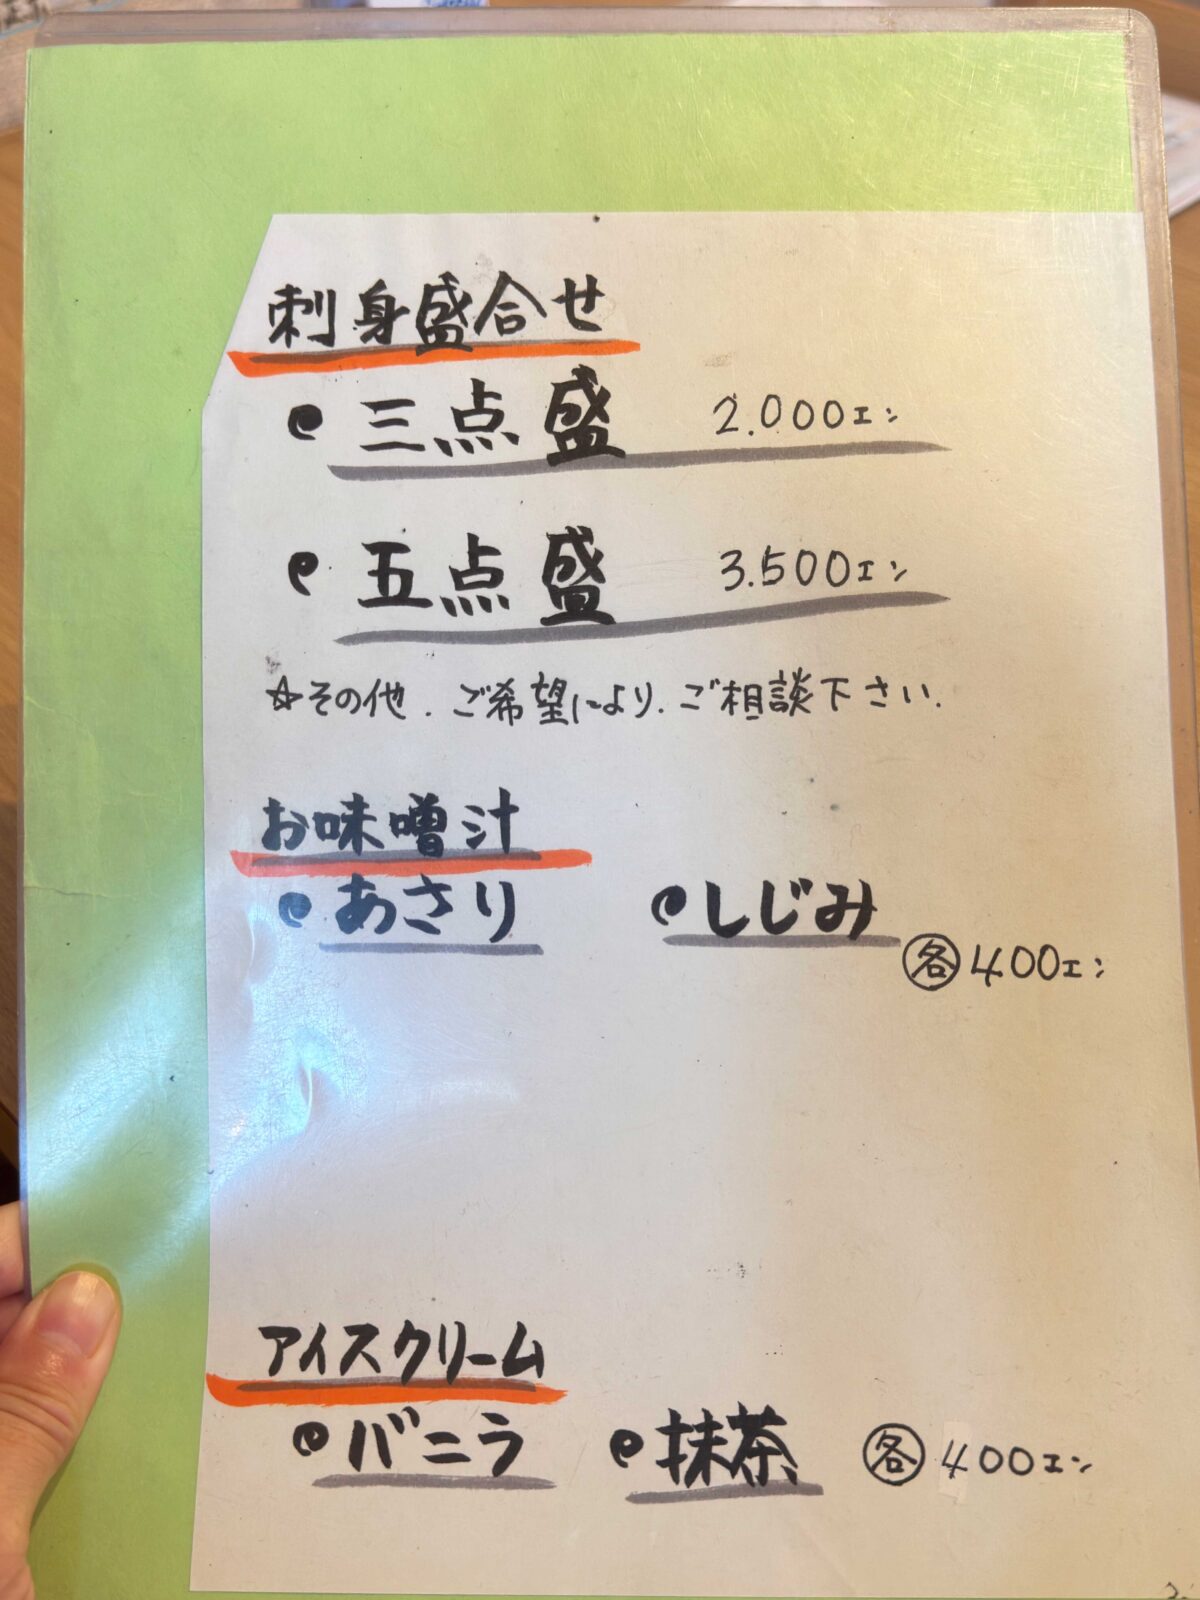 刺身盛合せ
三点盛 2.000エン
五点盛 3.500エン
☆その他.ご希望により.ご相談下さい.
お味噌汁
あさり しじみ
㊎各 400エン
アイスクリーム
バニラ 抹茶 各 400エン